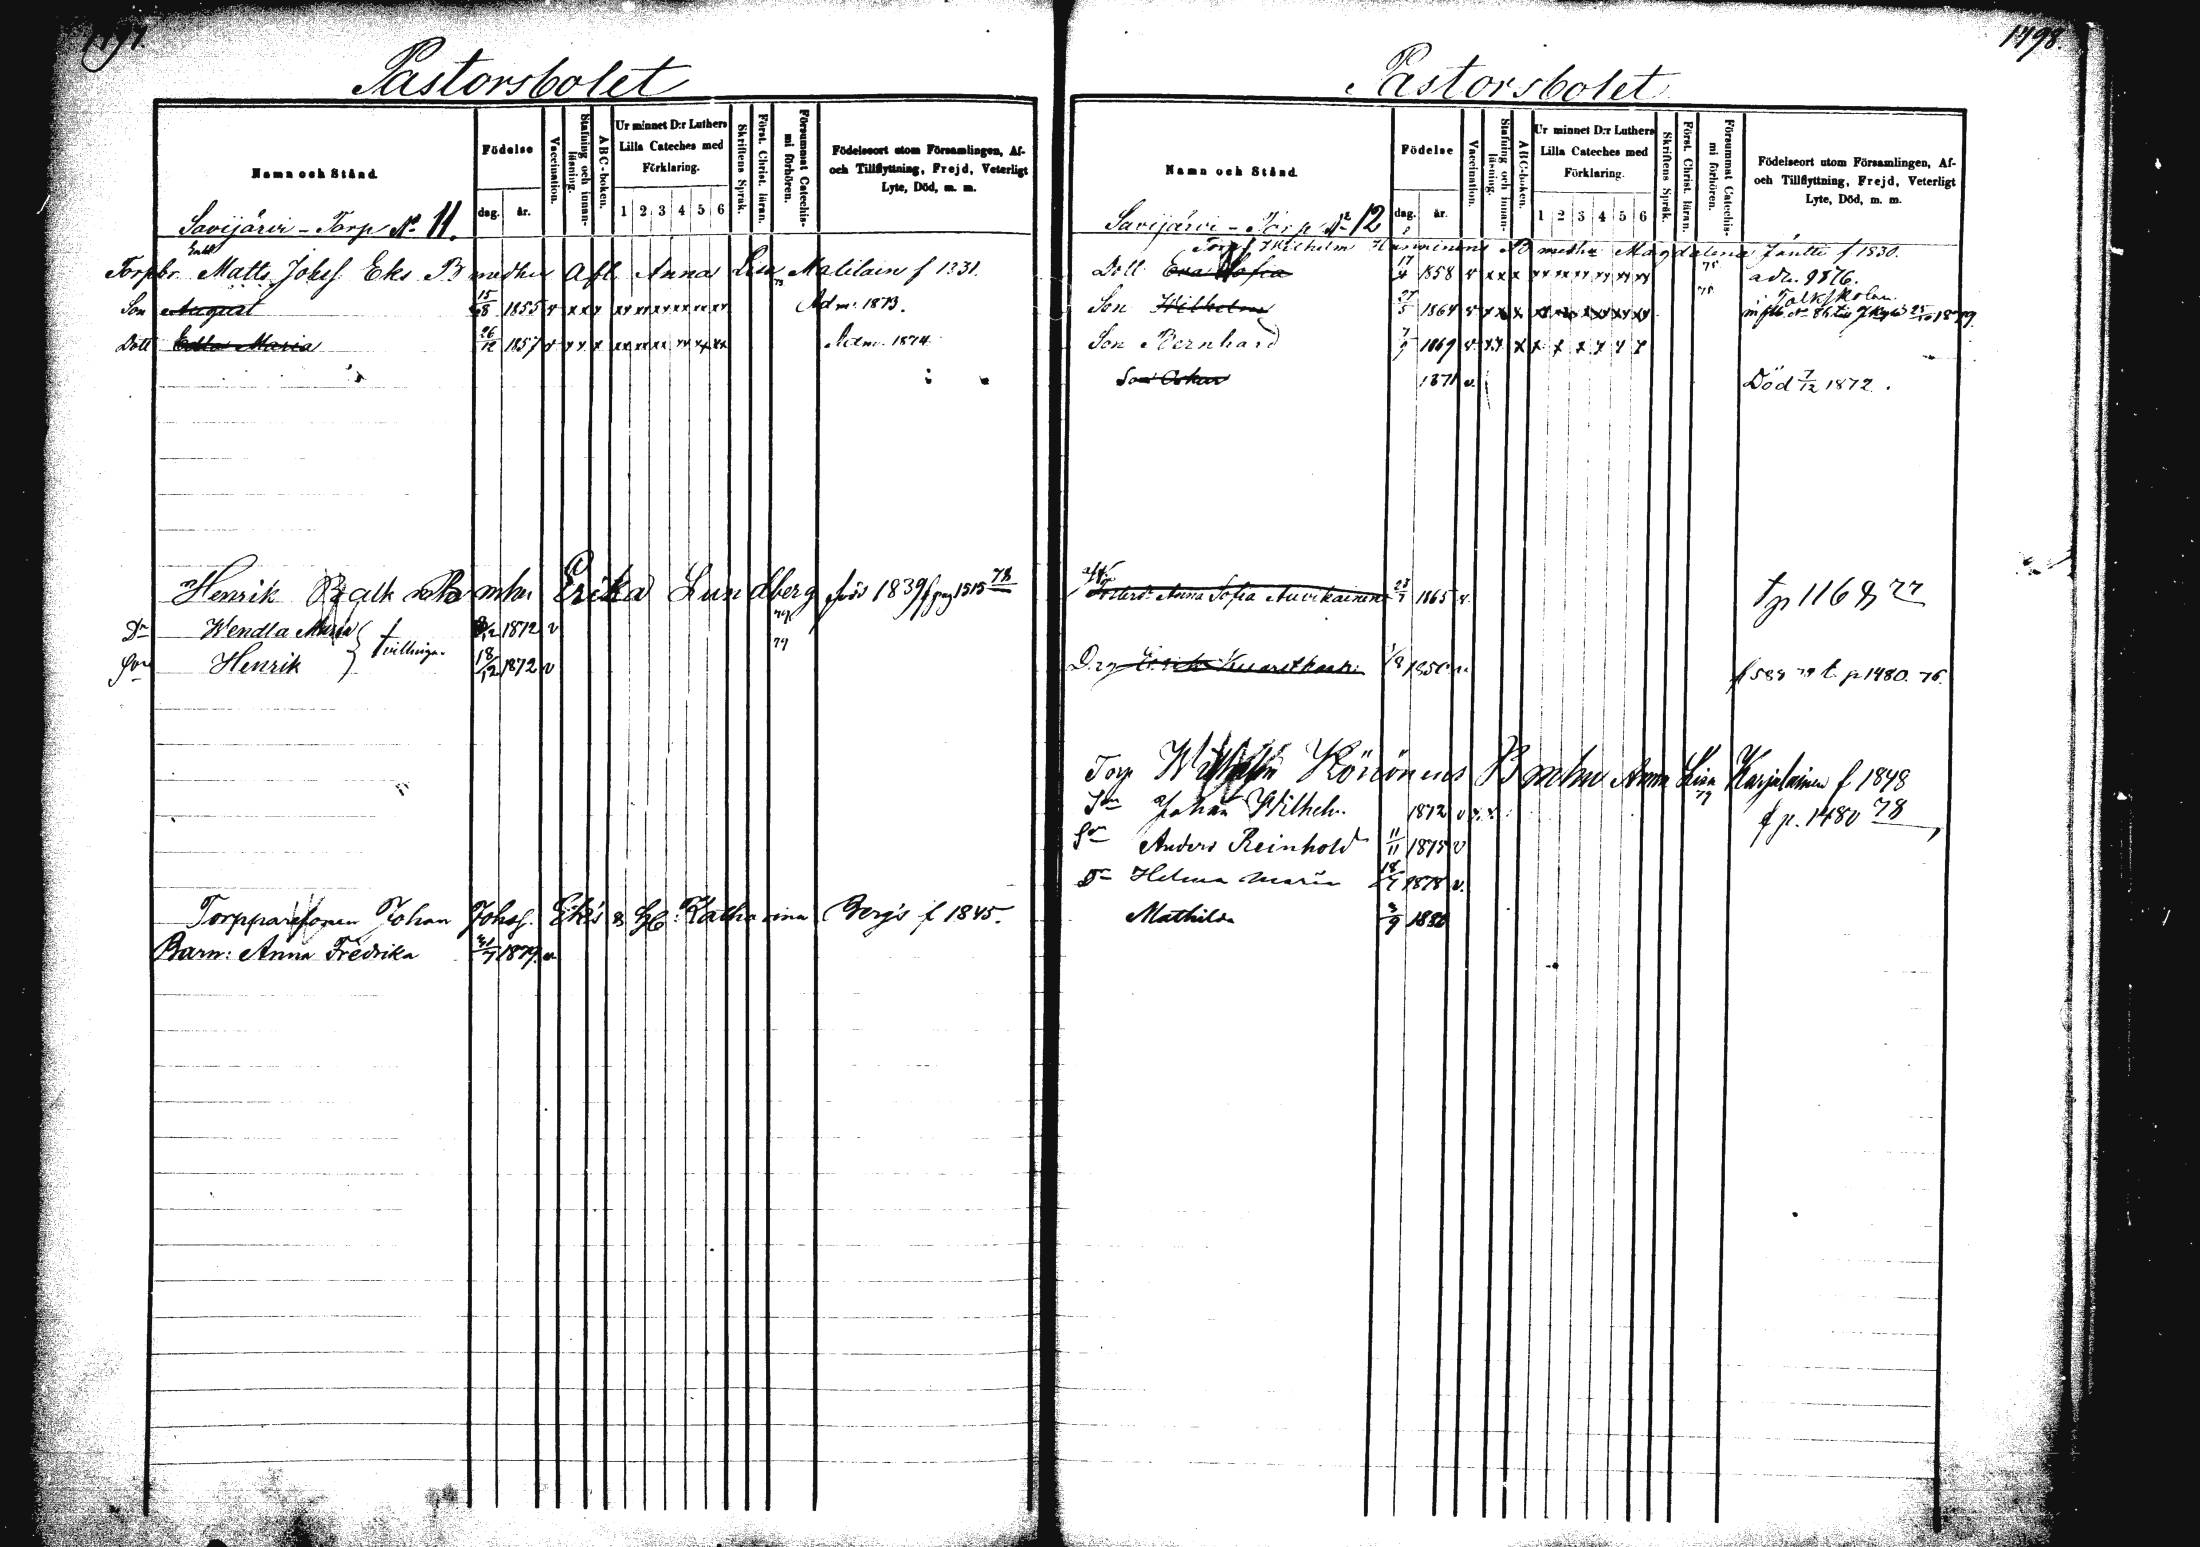 1797.
Pastorsbolet
Namn och Stånd.
Födelse
dag. år.
Vaccination.
Stafning och innan-läsning.
ABC-boken.
Ur minnet D:r Luthers Lilla Cateches med Förklaring.
1 2 3 4 5 6
Skriftens Språk.
Först. Christ. läran.
Försummat Catechis-mi förhören.
Födelseort utom Församlingen, Af- och Tillflyttning, Frejd, Veterligt Lyte, Död, m. m.
Savijärvi - Torp No 11.
Enkl
Torpbr. Matts Johsf Eks B medhu Afl Anna Lisa Matilain f 1831.
73
Son August 15/8 1855 v x x x xx xx xx xx xx xx Adm. 1873.
Dott Edla Maria 26/12 1857 v x x x xx xx xx xx xx xx Adm. 1874
Henrik Balk mhu Erika Lundberg 1839 f pag 1515 78
79
Dr Wendla Maria } tvillingar /12 1872 v
79
Son Henrik 18/12 1872 v
Torpparesonen Johan Johsf. Ek's & H: Katharina Berg's f 1845.
Barn: Anna Fredrika 21/7 1879. v
1798.
Pastorsbolet
Namn och Stånd.
Födelse
dag. år.
Vaccination.
Stafning och innan-läsning.
ABC-boken.
Ur minnet D:r Luthers Lilla Cateches med Förklaring.
1 2 3 4 5 6
Skriftens Språk.
Först. Christ. läran.
Försummat Catechis-mi förhören.
Födelseort utom Församlingen, Af- och Tillflyttning, Frejd, Veterligt Lyte, Död, m. m.
Savijärvi - Torp No 12
Torp Wilhelm Hanninens B medhu Magdalena Jäntti f 1830.
Dott Eva Sofia 17/4 1858 v x x x xx xx xx xx xx xx 75 adm. 1876.
Folkskolan
Son Wilhelm 27/5 1864 v x x x xx xx xx xx xx xx 78 1879.
Son Bernhard 7/9 1869 v. x x x x x x x x x
Son Oskar 1871 v. Död 7/12 1872.
Anna Sofia Auvikainen 28/7 1865 v. t p 1168 77
Drg 1/8 1856 v. f 589 t p 1480. 76.
Torp Wilhelm Könönens B mhu Anna Lisa Karjalainen f. 1848
79
Son Johan Wilhelm 1872 v x. x. f p. 1480 78
Sn Anders Reinhold 11/11 1875 v
Dr Helena Maria 18/7 1878 v.
Mathilda 3/9 1880